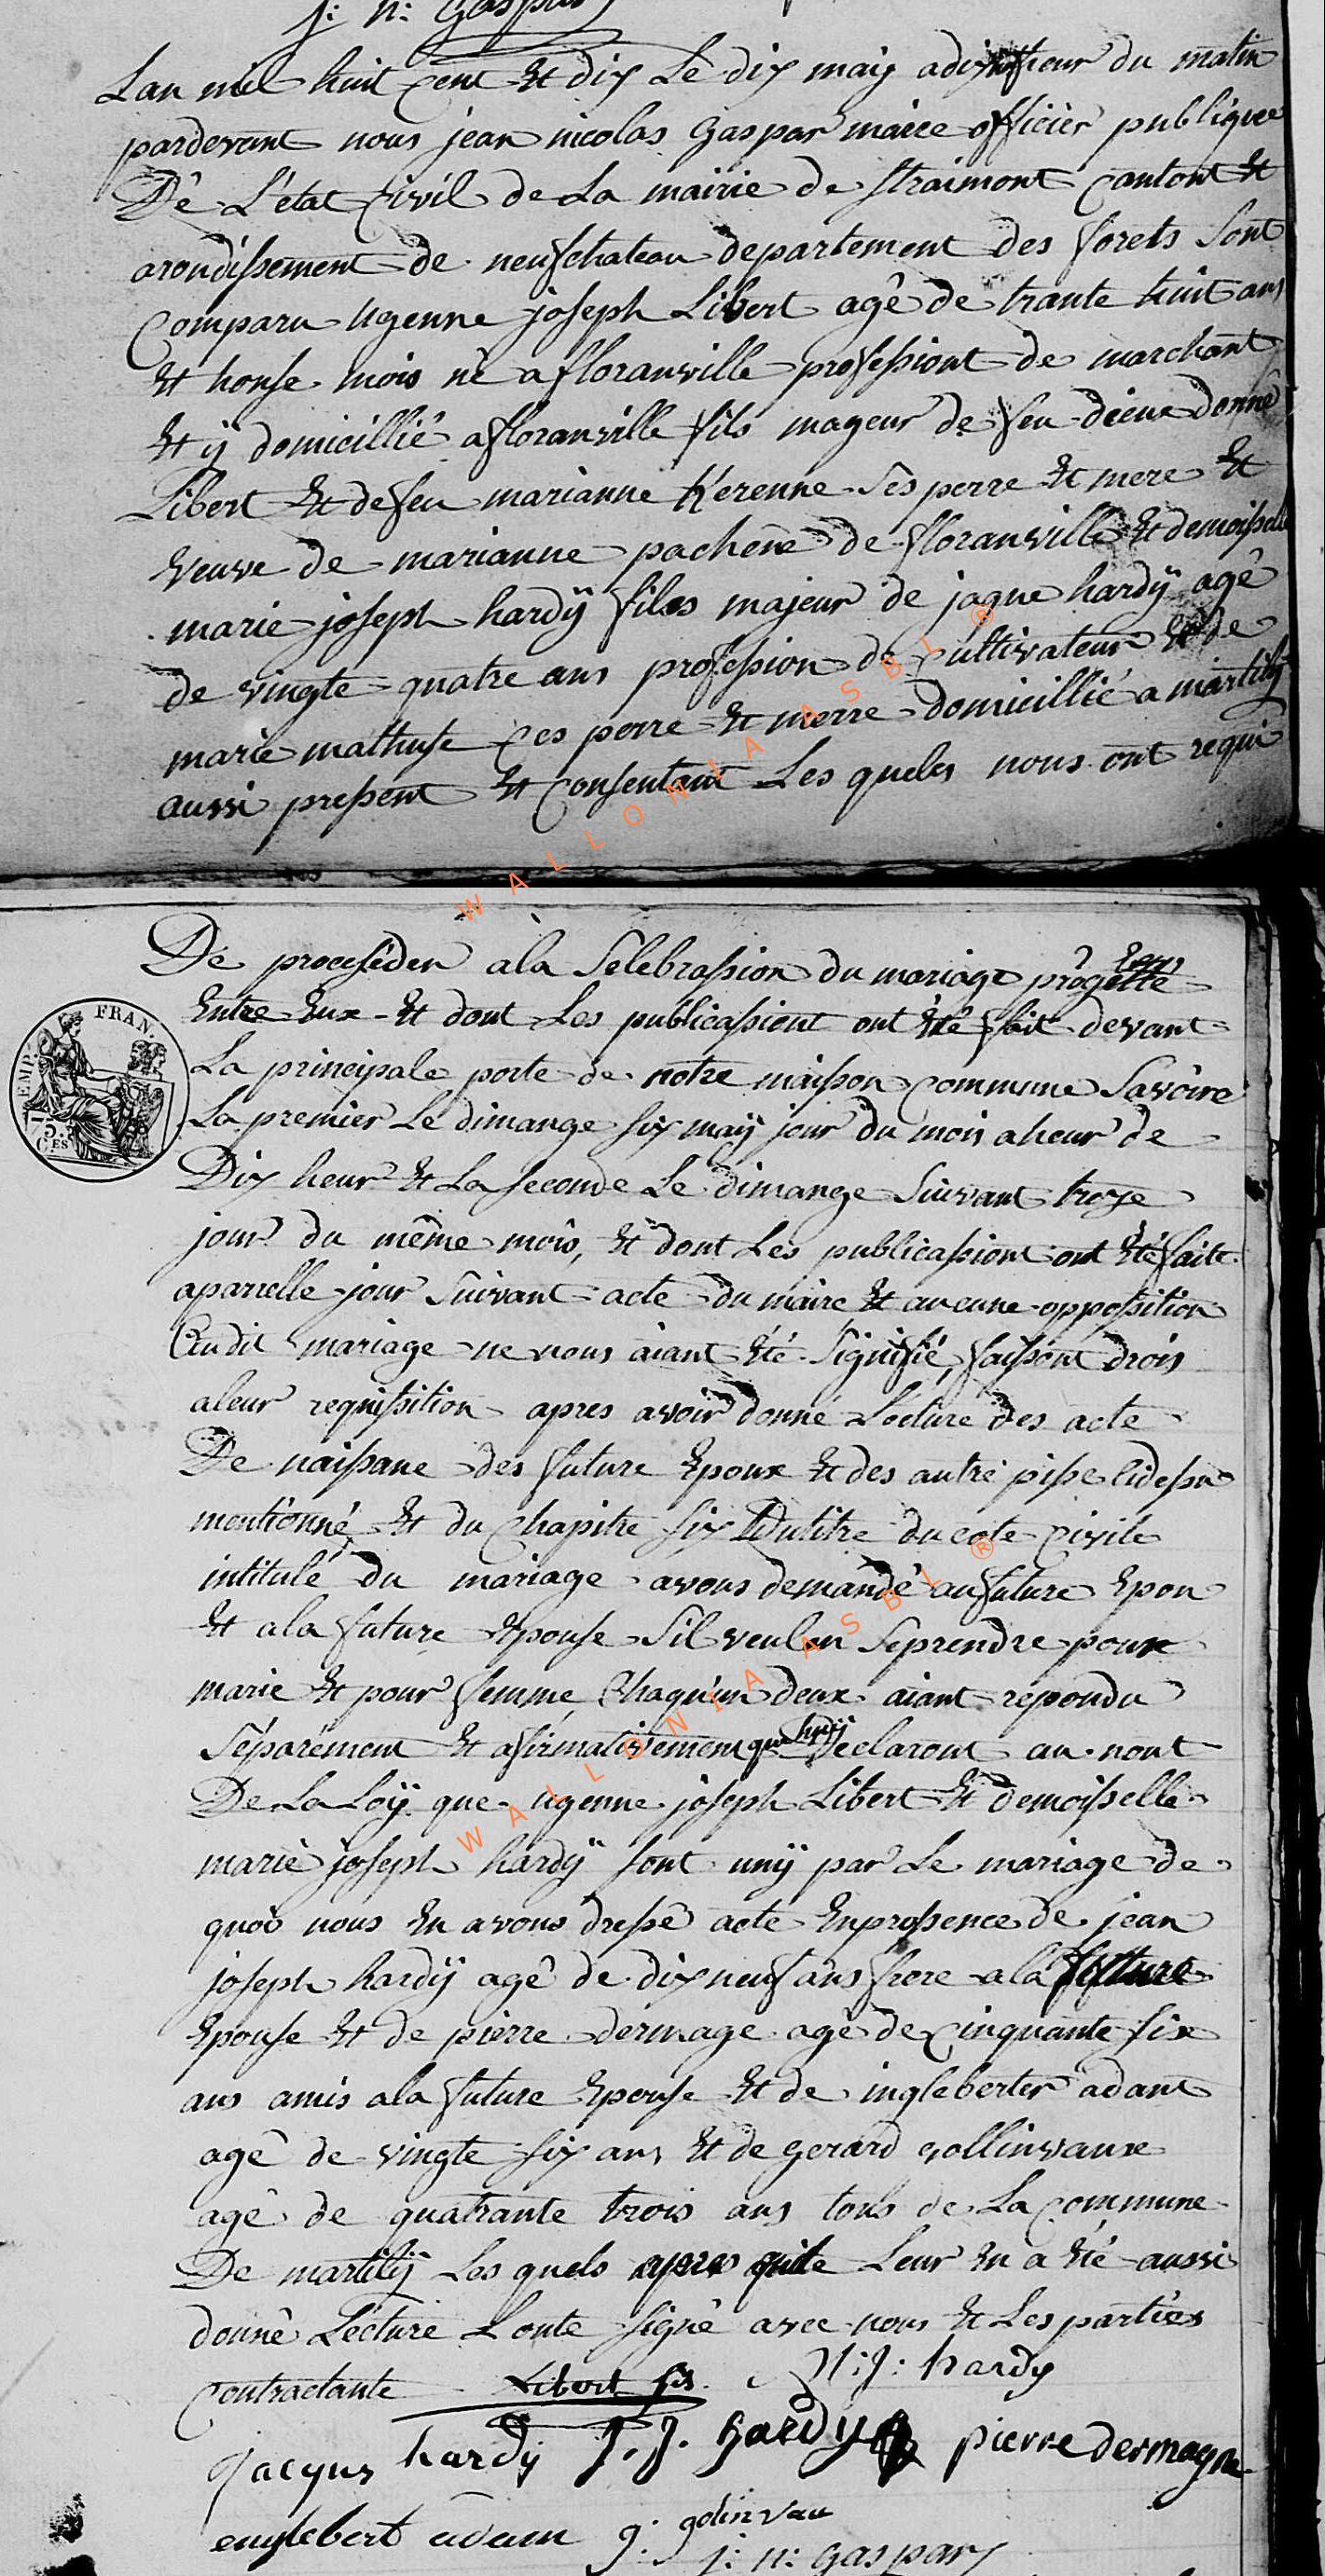 j: n: Gaspar
Lan mil huit cent Et dix Le dix maÿ a dix heur du matin
pardevant nous jean nicolas Gaspar maire officier publique
De L'état Civil de La mairie de straimont Canton Et
arondissement de neufchateau departement des forets Sont
Comparu Ugenne joseph Libert agê de trante huit ans
Et honse mois nê a floranville professiont de marchant
Et ÿ domicillié a floranville fils mageur de feu dieux donné
Libert Et de feu marianne ses perre Et mere Et
veuve de marianne pachene de floranville Et demoisselle
marie joseph hardÿ files majeur de jaque hardÿ agê
de vingte quatre ans profession de cultivateur Et de
marie mathuse Ces perre Et merre domicillié a martilÿ
aussi present Et Consentant Les queles nous ont requi
De procesêder a la Selebration du mariage progetté
Entre Eux Et dont Les publicassiont ont Eté fait devant
La principale porte de notre maisson commune Savoire
La premier Le dimange six maÿ jour du mois a heur de
Dix heur Et La seconde Le dimange Suivant troze
jour du même mois, Et dont Les publicassiont ont Eté faite
aparrelle jour Suivant acte du maire Et aucune oppossition
Audit mariage ne nous aiant Eté Signifié, faissont drois
a leur requissition apres avoir donné Lecture des acte
De naissane des future Epoux Et des autre pise Cidessu
mentionné Et du Chapitre six Dutitre du cote Civile
intitulé du mariage avons demandé au future Epou
Et a la future Epouse Sil veulen Se prendre pour
marie Et pour femme, Chaqu'un deux aiant repondu
Séparément Et afirmativement que huÿ Declaront au nont
De La Loÿ que ugenne joseph Libert Et demoisselle
marie joseph hardÿ sont unÿ par Le mariage de
quoi nous En avons dressé acte Enpressence de jean
joseph hardÿ agé de dix neuf ans frere a la future
Epouse Et de pierre dermage agé de Cinquante six
ans amis a la future Epouse Et de ingleberter adant
agé de vingte six ans Et de gerard gollinvaux
agé de quatrante trois ans tous de La Commune
De martilÿ Les quels apres quile Leur En a Eté aussi
donné Lecture L onte signé avec nous Et Les parties
Contractante Libert fis. M: J: hardy
Jacqus hardÿ J. J. hardy pierre dermagne
englebert adam g: golinvau
j: n: gaspar
FRAN.
EMP.
5.
C.ES
WALLONIA ASBL ®
WALLONIA ASBL ®